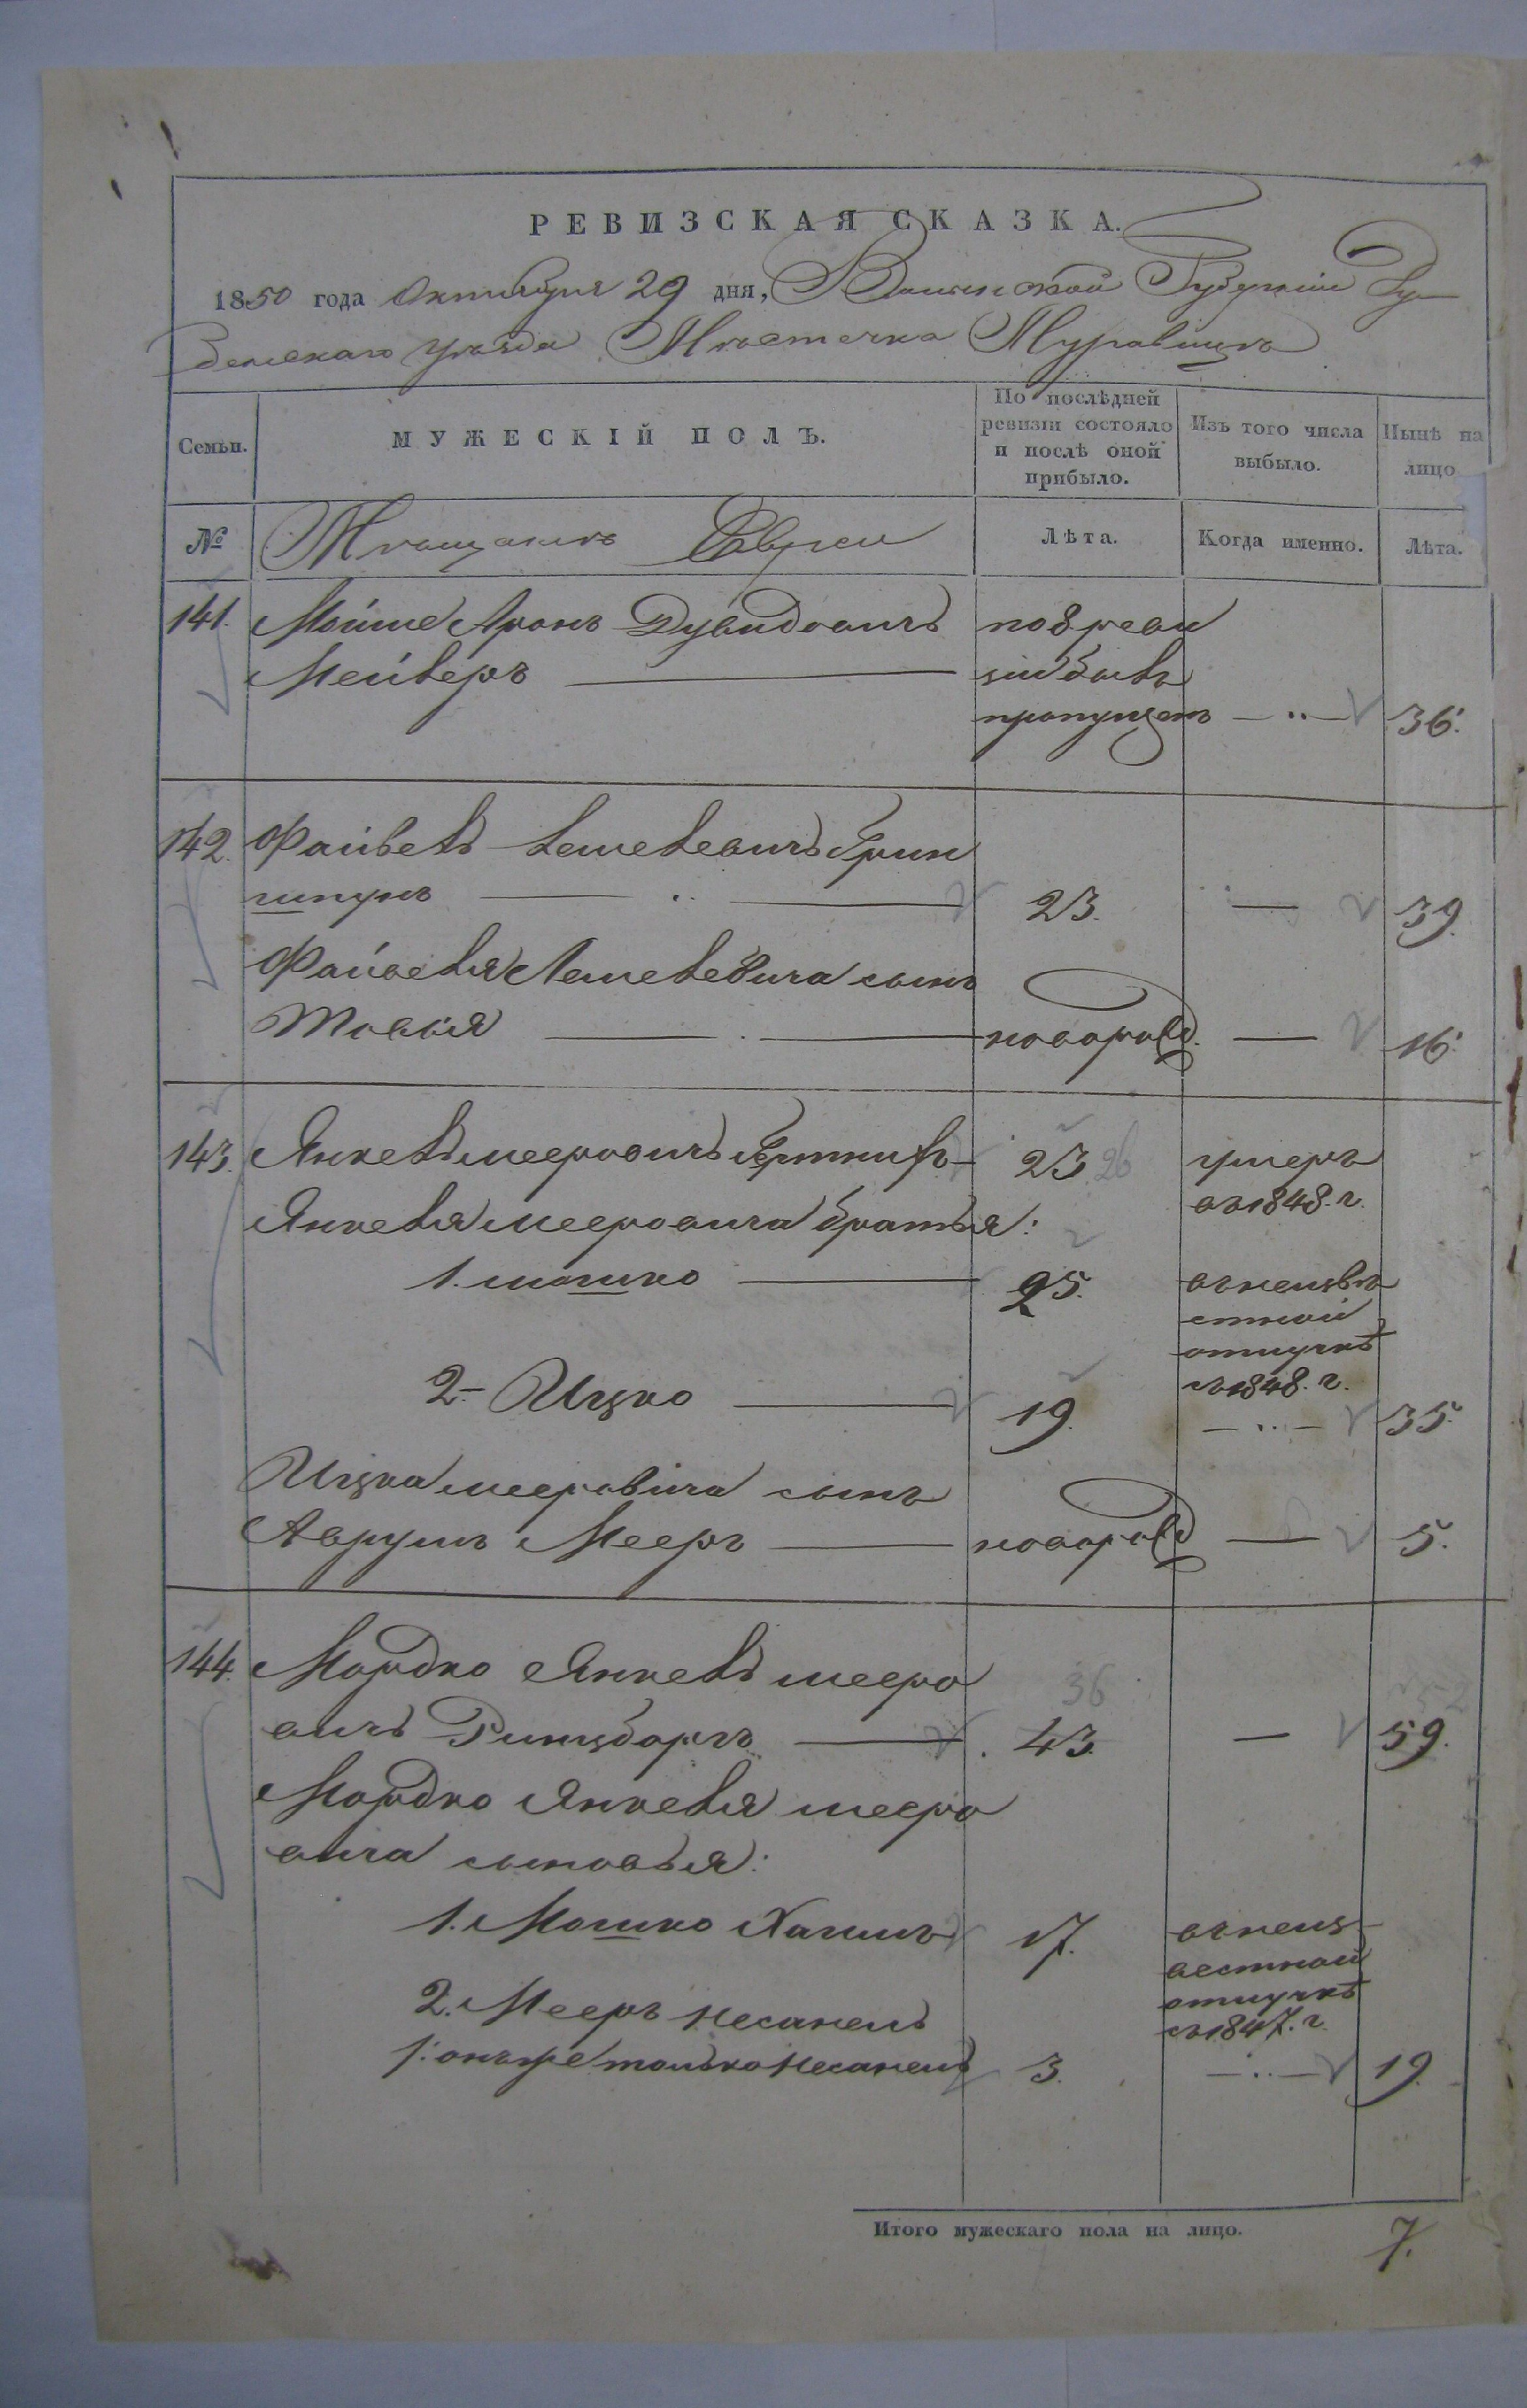 РЕВИЗСКАЯ СКАЗКА.
1850 года Октября 29 дня, Волынской Губерніи Ду-
бенскаго уѣзда Мѣстечка Муравицъ
Семьи.
МУЖЕСКІЙ ПОЛЪ.
По послѣдней
ревизіи состояло
и послѣ оной
прибыло.
Изъ того числа
выбыло.
Нынѣ на
лицо
№
Мѣщанъ Евреи
Лѣта.
Когда именно.
Лѣта.
141. Мойше Аронъ Дувидовичъ
Мейверъ
по 8 реви
зіи бывъ
пропущен — " — 36.
142. Файвель Лейбовичъ Грин
шпунъ 23. — 39.
Файвеля сынъ
Товія новорожд. — 16.
143. Янкель Мееровичъ 23 26 умеръ
въ 1848. г.
Янкеля Мееровича братья:
1. Мошко 25. въ неизвѣ
стной
отлучкѣ
съ 1848. г.
2- Ицко 19. — " — 35.
Ицка Мееровича сынъ
Аврумъ Мееръ новорожд — 5.
144. Мордко Янкель Мееро
вичъ 36 43. — 59.
Мордко Янкеля Мееро
вича сыновья:
1. Мошко Хаимъ 17. въ неиз-
вестной
отлучкѣ
съ 1847. г.
2. Мееръ Несанель
1: онъ же только Несанель 3. — " — 19.
Итого мужескаго пола на лицо. 7.